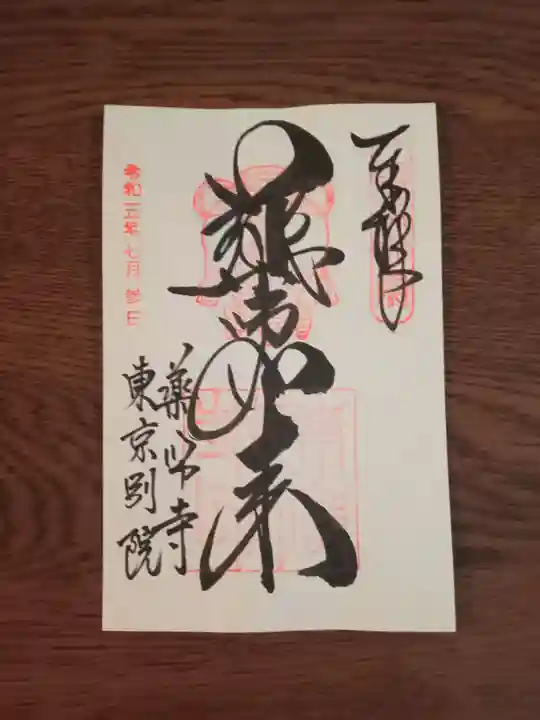 奉拝
薬師如来
薬師寺
東京別院
令和三年七月参日